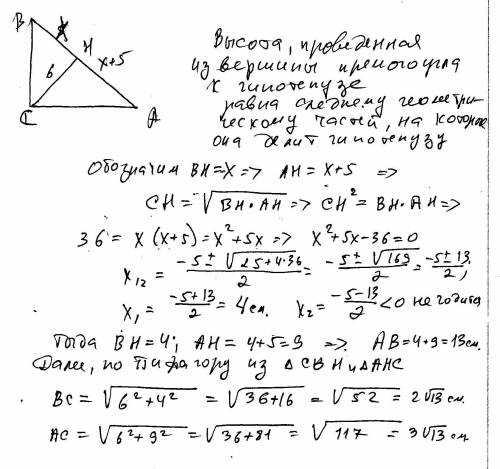 B
x
H
6
x+5
C
A
Высота, проведенная
из вершины прямого угла
к гипотенузе
равна среднему геометри-
ческому частей, на которое
она делит гипотенузу
Обозначим BH=x => AH=x+5 =>
CH=√BH·AH => CH²=BH·AH=>
36= x(x+5)=x²+5x => x²+5x-36=0
x₁₂ = (-5±√25+4·36)/2 = (-5±√169)/2 = (-5±13)/2;
x₁ = (-5+13)/2 = 4см. x₂ = (-5-13)/2 <0 не годится
Тогда BH=4; AH=4+5=9 => AB=4+9=13см.
Далее, по Пифагору из △CBH и △AHC
BC = √6²+4² = √36+16 = √52 = 2√13 см.
AC = √6²+9² = √36+81 = √117 = 3√13 см